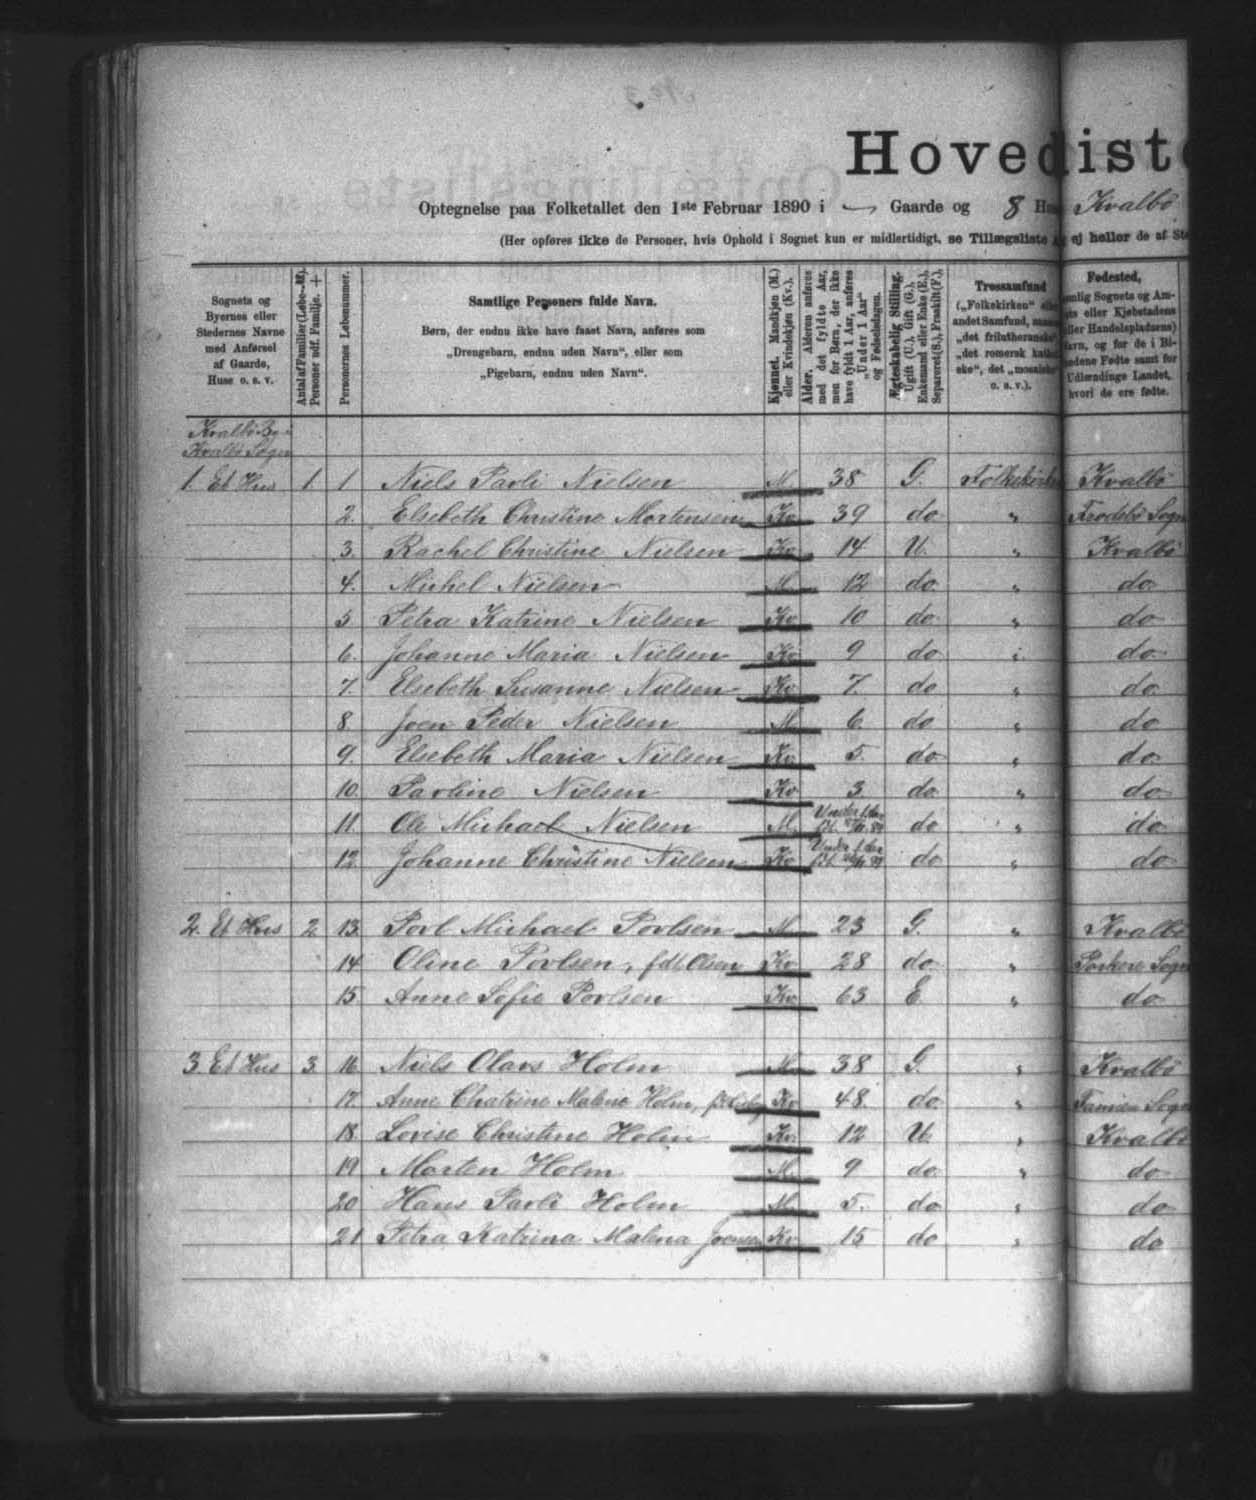 Hovediste
Optegnelse paa Folketallet den 1ste Februar 1890 i — Gaarde og 8 Hu Kvalbø
(Her opføres ikke de Personer, hvis Ophold i Sognet kun er midlertidigt, se Tillægsliste ej heller de af
Sognets og Byernes eller Stedernes Navne med Anførsel af Gaarde, Huse o. s. v.
Antal af Familier
Personer udf. Familie.
Personernes Løbenummer.
Samtlige Personers fulde Navn.
Børn, der endnu ikke have faaet Navn, anføres som
„Drengebarn, endnu uden Navn“, eller som
„Pigebarn, endnu uden Navn“.
Kjønnet. Mandkjøn (M.) eller Kvindekjøn (Kv.).
Alder. Alderen anføres med det fyldte Aar, men for Børn, der ikke have fyldt 1 Aar, anføres „Under 1 Aar“ og Fødselsdagen.
Ægteskabelig Stilling. Ugift (U.), Gift (G.), Enkemand eller Enke (E.), Separeret (S.), Fraskilt (F.).
Trossamfund („Folkekirken“ andet Samfund, „det frilutheranske“ „det romersk o. s. v.).
Fødested,
Sognets og
eller Kjøbstadens
Handelspladsens)
Navn, og for de i Bi-
Fødte samt for
Udlændinge Landet,
hvori de ere fødte.
Kvalbø By i
Kvalbø Sogn
1. Et Hus 1 1 Niels Pavli Nielsen M. 38 G. Folkekirken Kvalbø
2. Elsebeth Christine Mortensen Kv 39 do " Frodebø Sogn
3. Rachel Christine Nielsen Kv 14 U. " Kvalbø
4. Michel Nielsen M. 12 do. " do
5 Petra Katrine Nielsen Kv 10 do. " do
6. Johanne Maria Nielsen Kv 9 do " do
7. Elsebeth Susanne Nielsen Kv 7. do " do
8 Joen Peder Nielsen M. 6. do " do
9. Elsebeth Maria Nielsen Kv 5. do " do
10. Pavline Nielsen Kv 3. do " do
11. Ole Michael Nielsen M. Under 1 do " do
12. Johanne Christine Nielsen Kv Under 1 do " do
2. Et Hus 2 13. Povl Michael Povlsen M. 23 G. " Kvalbø
14 Oline Povlsen, fdt. Olsen Kv 28 do " Porkere Sogn
15. Anne Sofie Povlsen Kv 63 E. " do
3. Et Hus 3. 16. Niels Olavs Holm M. 38 G. " Kvalbø
17. Anne Chatrine Malene Holm, Kv 48. do " Famien Sogn
18. Lovise Christine Holm Kv. 12 U. " Kvalbø
19 Morten Holm M. 9 do " do
20 Hans Pavli Holm M. 5. do " do
21 Petra Katrina Malena Joensen Kv 15 do " do